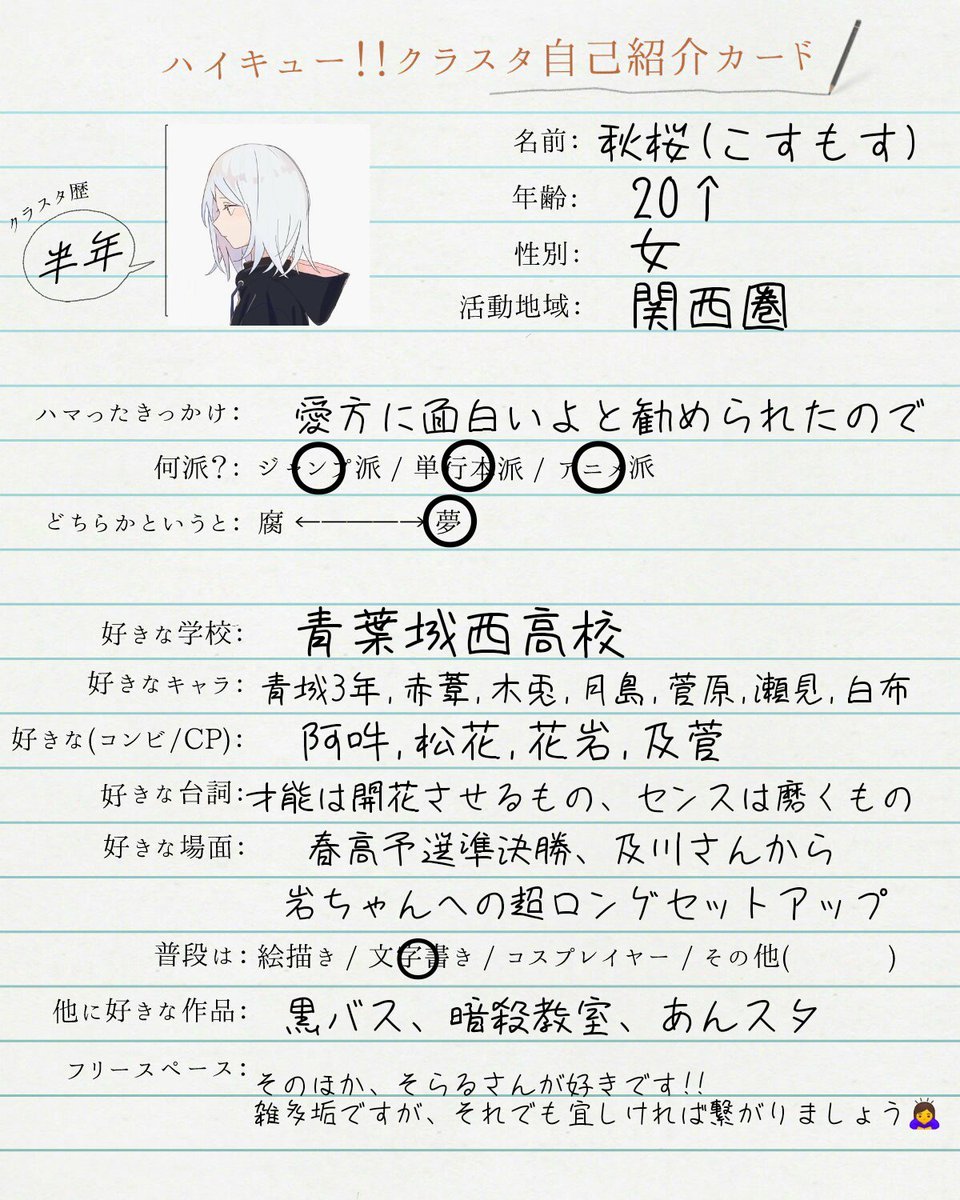 ハイキュー!!クラスタ自己紹介カード
クラスタ歴
半年
名前: 秋桜(こすもす)
年齢: 20↑
性別: 女
活動地域: 関西圏
ハマったきっかけ: 愛方に面白いよと勧められたので
何派?: ジャンプ派 / 単行本派 / アニメ派
どちらかというと: 腐 ←――――→ 夢
好きな学校: 青葉城西高校
好きなキャラ: 青城3年,赤葦,木兎,月島,菅原,瀬見,白布
好きな(コンビ/CP): 阿吽,松花,花岩,及菅
好きな台詞: 才能は開花させるもの、センスは磨くもの
好きな場面: 春高予選準決勝、及川さんから
岩ちゃんへの超ロングセットアップ
普段は: 絵描き / 文字書き / コスプレイヤー / その他( )
他に好きな作品: 黒バス、暗殺教室、あんスタ
フリースペース: そのほか、そらるさんが好きです!!
雑多垢ですが、それでも宜しければ繋がりましょう🙇‍♀️